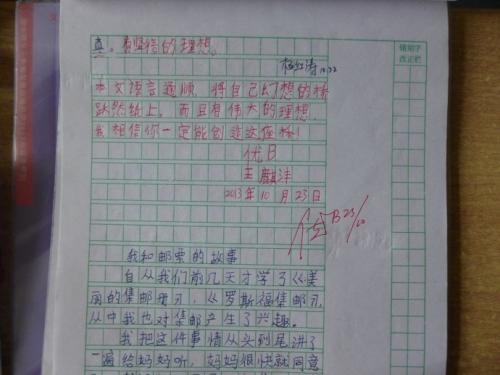 错别字
改正栏
真。有坚信的理想。
10.22
本文语言通顺，将自己幻想的桥
跃然纸上。而且有伟大的理想，
我相信你一定能创造这座桥！
优B
王麒沣
2013年10月23日
优B 23/10
我和邮票的故事
自从我们前几天才学了《美
丽的集邮册》，《罗斯福集邮》，
从中我也对集邮产生了兴趣。
我把这件事情从头到尾讲了
一遍给妈妈听，妈妈很快就同意